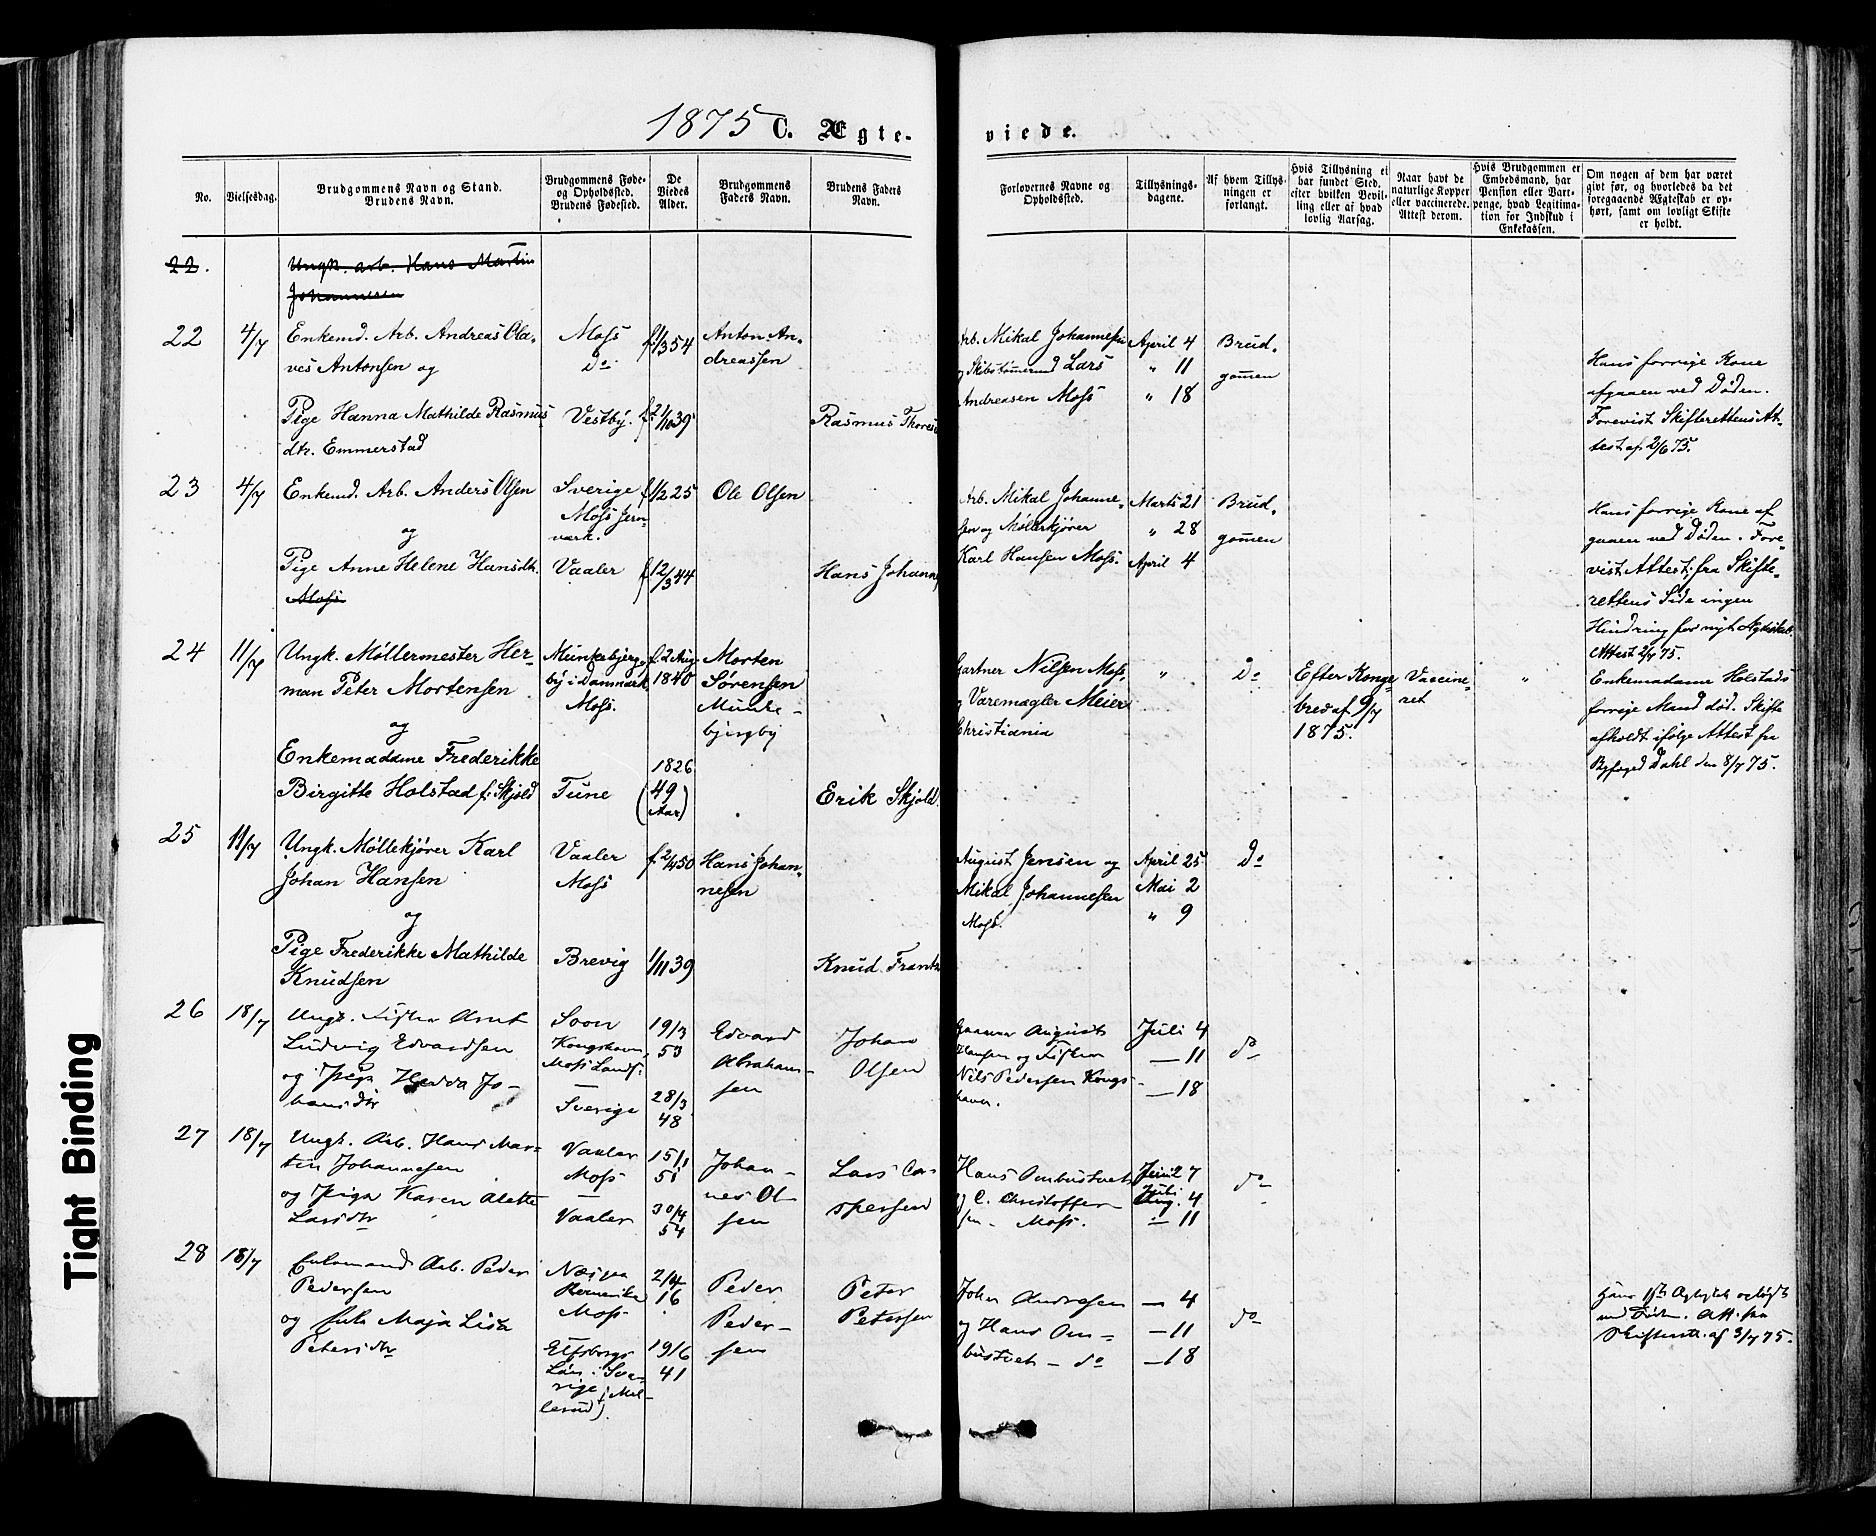 1875 C. Ægte-
viede.
No.
Vielsesdag.
Brudgommens Navn og Stand.
Brudens Navn.
Brudgommens Føde-
og Opholdssted.
Brudens Fødested.
De
Viedes
Alder.
Brudgommens
Faders Navn.
Brudens Faders
Navn.
Forlovernes Navne og
Opholdssted.
Tillysnings-
dagene.
Af hvem Tillys-
ningen er
forlangt.
Hvis Tillysning ei
har fundet Sted,
efter hvilken Bevil-
ling eller af hvad
lovlig Aarsag.
Naar havt de
naturlige Kopper
eller vaccinerede.
Attest derom.
Hvis Brudgommen er
Embedsmand, har
Pension eller Vart-
penge, hvad Legitima-
tion for Indskud i
Enkekassen.
Om nogen af dem har været
givt før, og hvorledes da det
foregaaende Ægteskab er op-
hørt, samt om lovligt Skifte
er holdt.
22.
Ungk. arb. Hans Martin
Johannesen
22
4/7
Enkemd. Arb. Andreas Ola-
ves Antonsen og
Pige Hanna Mathilde Rasmus
dtr. Emmerstad
Moss
Do
Vestby.
f. 1/3 54
f. 21/10 39
Anton An-
dreassen
Rasmus Thores
Arb. Mikal Johannesen
og Skibstømermd Lars
Andreasen Moss
April 4
" 11
" 18
Brud-
gomen
Hans forrige Kone
afgaaen ved Døden.
Forevist Skifterettens At-
test af 2/6 75.
23
4/7
Enkemd. Arb. Anders Olsen
og
Pige Anne Helene Hansdtr.
Moss
Sverige
Moss Jern-
værk.
Vaaler
f. 1/2 25
f. 12/3 44
Ole Olsen
Hans Johann
Arb. Mikal Johanne-
sen og Møllekjører
Karl Hansen Moss.
Marts 21
" 28
April 4
Brud-
gomen
Hans forrige Kone af
gaaen ved Døden. Fore-
vist Attest, fra Skifte-
rettens Side ingen
Hindring for nyt Ægteskab.
Attest 2/7 75.
24
11/7
Ungk. Møllermester Her-
man Peter Mortensen
og
Enkemadame Frederikke
Birgitte Holstad f. Skjold
Munkebjerg-
by i Danmark
Moss.
Tune
f. 2 Aug
1840
1826
(49
Aar)
Morten
Sørensen
Munke-
bjergby
Erik Skjold
Gartner Nilsen Moss,
og Varemægler Meier
Christiania
"
Do
Efter Konge
brev af 9/7
1875.
Vaccine-
ret
"
Enkemadame Holstads
forrige Mand død. Skifte
afholdt ifølge Attest fra
Byfoged Dahl den 8/7 75.
25
11/7
Ungk. Møllekjører Karl
Johan Hansen
og
Pige Frederikke Mathilde
Knudsen
Vaaler
Moss
Brevig
50
1/11 39
Hans Johan-
nesen
Knud Frants
August Jensen og
Mikal Johannesen
Moss.
April 25
Mai 2
" 9
Do
26
18/7
Ungk. Fisker Arnt
Ludvig Edvardsen
og Pige Hedda Jo-
hansdtr
Soon
Kongshavn,
Moss Lands.
Sverige
19/3
53
28/3
48
Edvard
Abraham-
sen
Johan
Olsen
August
Hansen og Fisker
Nils Pedersen Kongs-
havn.
Juli 4
— 11
— 18
do
27
18/7
Ungk. Arb. Hans Mar-
tin Johannesen
og Pige Karen Alette
Larsdtr
Vaaler
Moss
Vaaler
15/1
51
30/4
54
Johan-
nes Ol-
sen
Lars Ca-
spersen
Hans Ombustvet
og C. Christoffer
sen - Moss.
Juni 27
Juli
Aug. 4
— 11
do
28
18/7
Enkemand Arb. Peder
Pedersen
og Enke Maja Lisa
Petersdtr
Næs paa
Romerike
Moss
Elfsborgs
Län i Sve-
rige (Mel-
lerud).
2/4
16
19/6
41
Peder
Peder-
sen
Peter
Petersen
Johan Andresen
og Hans Om-
bustvet — do
— 4
— 11
— 18
do
Hans 1ste Ægteskab opløst
ved Døden. Att. fra
Skifterett. af 3/7 75.
Tight Binding